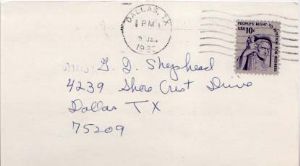 DALLAS, TX
PM
PEOPLE'S RIGHT TO PETITION FOR REDRESS
USA 10c
G. D. Shepshead
4239 Shore Crest Drive
Dallas TX
75209